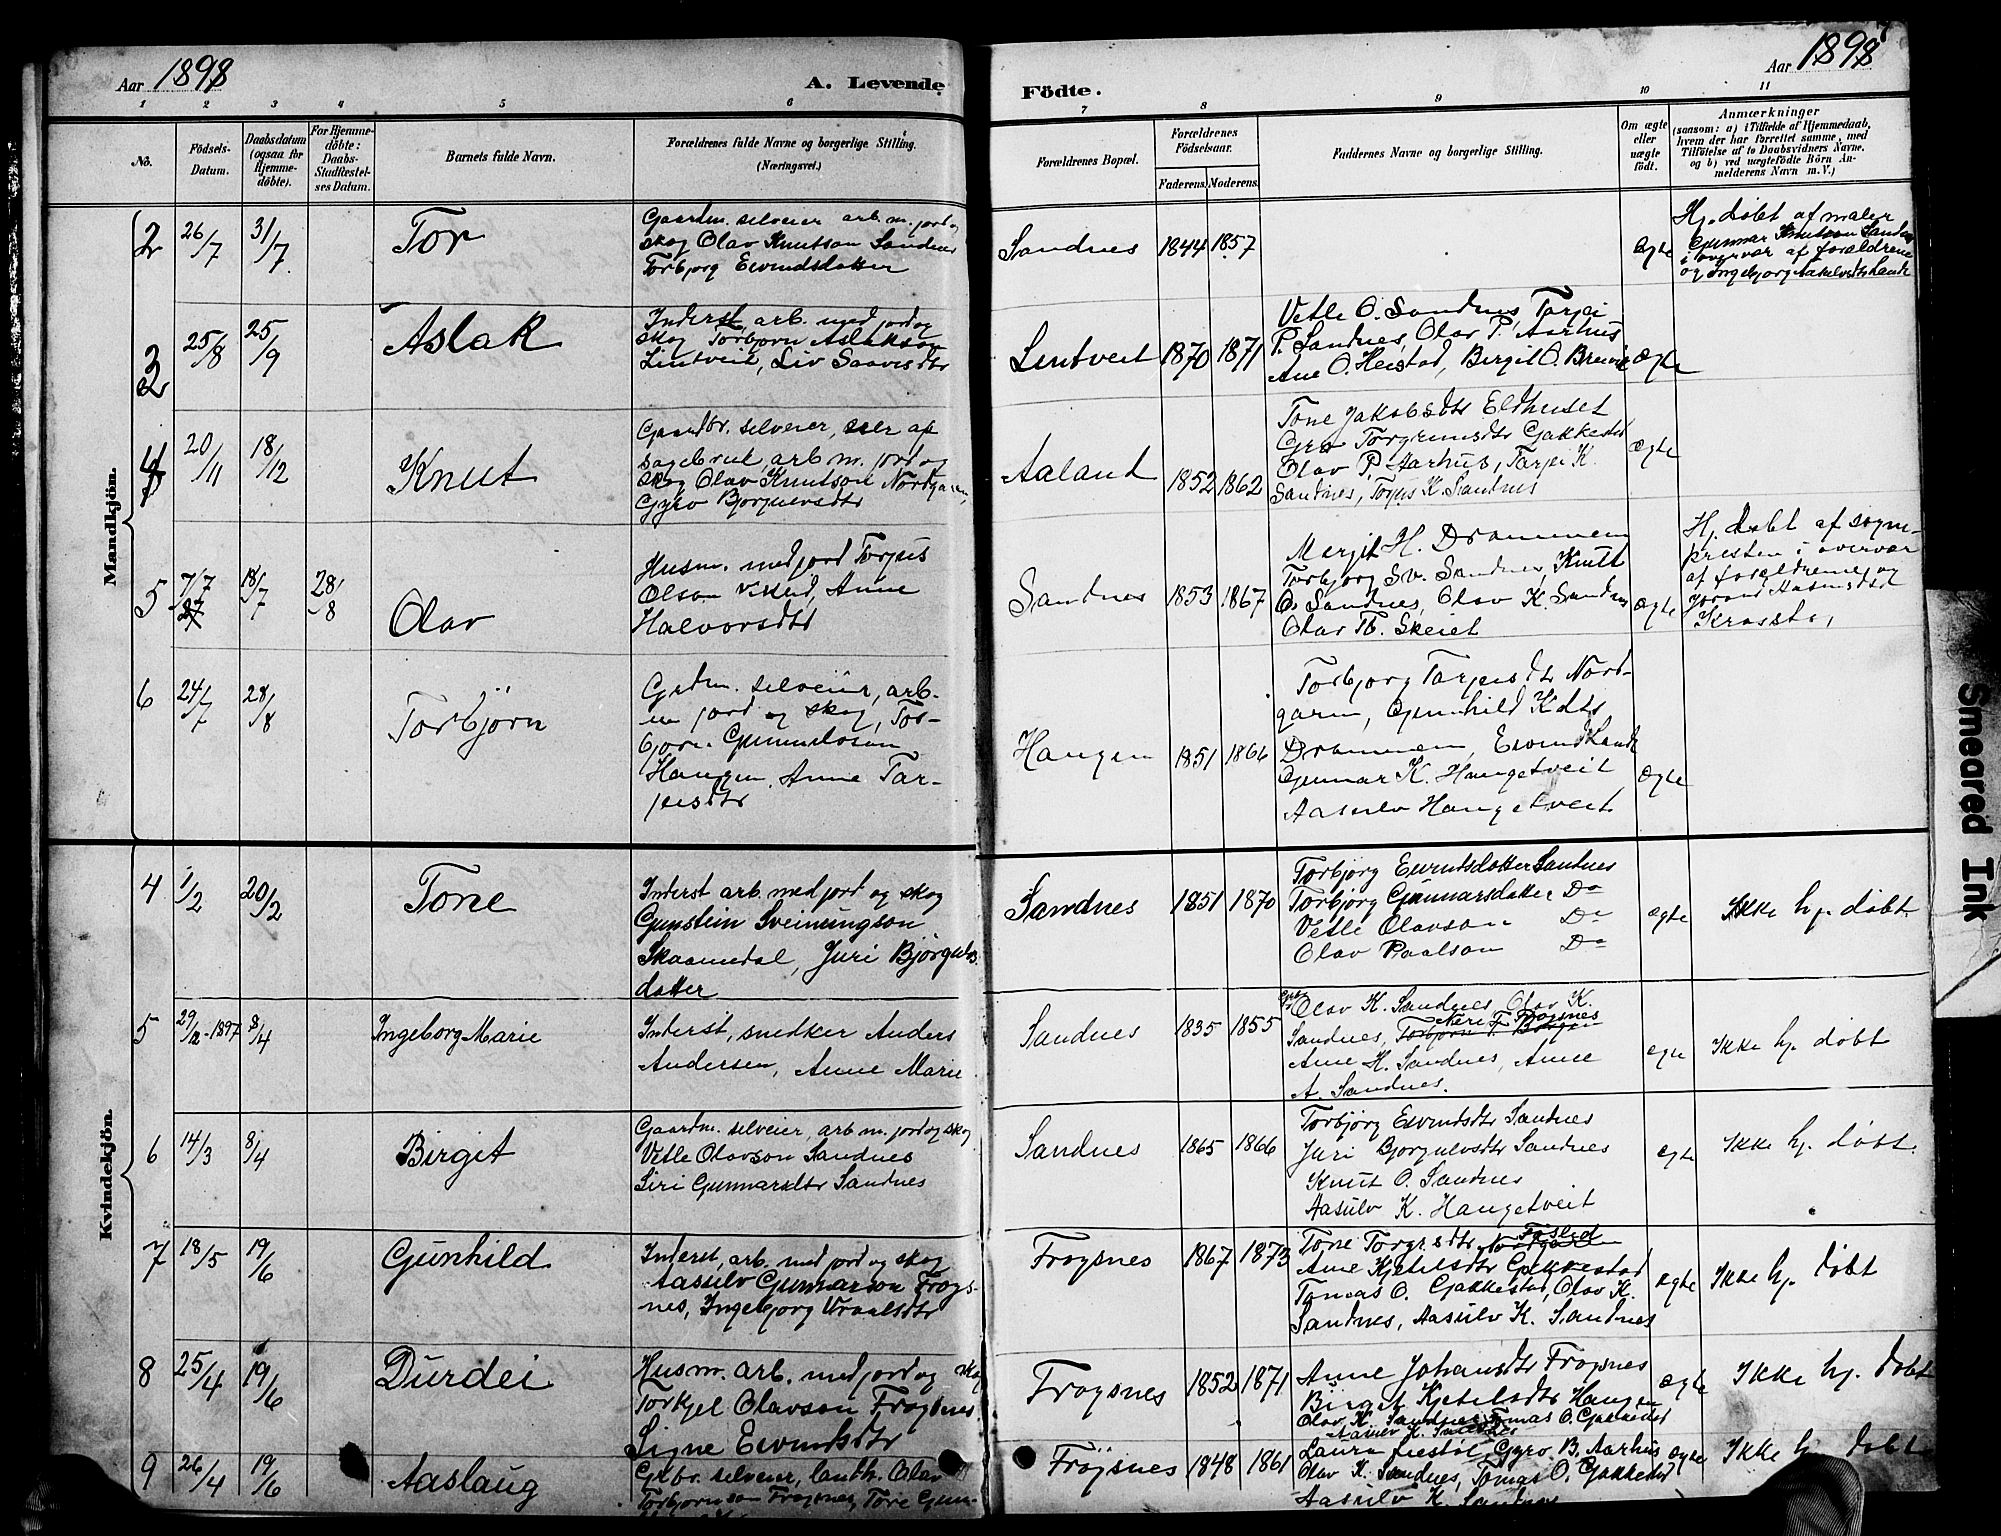 Aar 1898
A. Levende
Födte.
Aar 1898
1 2 3 4 5 6 7 8 9 10 11
No.
Födsels-
Datum.
Daabsdatum
(ogsaa for
Hjemme-
döbte).
For Hjemme-
döbte:
Daabs-
Stadfæstel-
ses Datum.
Barnets fulde Navn.
Forældrenes fulde Navne og borgerlige Stilling.
(Næringsvei.)
Forældrenes Bopæl.
Forældrenes
Födselsaar.
Faderens. Moderens.
Faddernes Navne og borgerlige Stilling.
Om ægte
eller
uægte
födt.
Anmærkninger
(saasom: a) i Tilfælde af Hjemmedaab,
hvem der har forrettet samme, med
Tilföielse af to Daabsvidners Navne.
og b) ved uægtefödte Börn An-
melderens Navn m. V.)
Mandkjön.
2 26/7 31/7 Tor
Gaardm. selveier arb. m. jord og
skog Olav Knutson Sandnes
Torbjorg Eivindsdatter
Sandnes 1844 1857
ægte
Hj. döbt af maler
Gunnar Knutson Sandnes
i overvær af forældrene
og Ingebjorg Lande
3 25/8 25/9 Aslak
Inderst, arb. med jord og
skog Torbjorn Aslakson
Lintveit, Liv Saavesdtr
Lintveit 1870 1871
Vetle O. Sandnes, Tarjei
P. Sandnes, Olav P. Aarhus
Ane O. Heistad, Birgit O. Brevik
ægte
4 20/11 18/12 Knut
Gaardbr. selveier, eier af
sagebruk, arb. m. jord og
skog Olav Knutson Nordgaren,
Gyro Bjorgulvsdtr
Aaland 1852 1862
Tone Jakobsdtr Eldhuset
Gro Torgrimsdtr Gakkestad
Olav P. Aarhus, Tarjei K.
Sandnes, Torjus K. Sandnes
ægte
5 7/7 18/7 28/8 Olav
Husm. med jord Torjus
Olson Skeid, Anne
Halvorsdtr
Sandnes 1853 1867
Margit H. Drammen
Torbjorg Sv. Sandnes, Knut
O. Sandnes, Olav K. Sandnes
Olav Tb. Skeiet
ægte
Hj. döbt af sogne-
presten i overvær
af forældrene og
Jorand Aasmundsdtr
6 24/7 28/8 Torbjörn
Grdm. selveier, arb-
m jord og skog, Tor-
bjorn Gunnulvson
Haugen, Anne Tar-
jeisdtr
Haugen 1851 1866
Torbjorg Tarjeisdtr Nord-
garen, Gunhild Kdtr
Drammen, Eivind Lande
Gunnar K. Haugetveit
Aasulv Haugetveit
ægte
Kvindekjön.
4 1/2 20/2 Tone
Inderst arb. med jord og skog
Gunstein Sveinungson
Skaamedal, Juri Björgulvs-
datter
Sandnes 1851 1870
Torbjörg Eivindsdatter Sandnes
Torbjörg Gunnarsdatter Do
Vetle Olavson Do
Olav Paalson Do
ægte
Ikke hj. döbt
5 29/12-1897 8/4 Ingeborg Marie
Inderst, snedker Anders
Andersen, Anne Marie
Sandnes 1835 1855
Olav K. Sandnes, Olav K.
Sandnes, Neri T. Frogsnes
Anne H. Sandnes, Anne
A. Sandnes.
ægte
Ikke hj. döbt
6 14/3 8/4 Birgit
Gaardm. selveier, arb m. jord og skog
Vetle Olavson Sandnes
Siri Gunnarsdtr Sandnes
Sandnes 1865 1866
Torbjörg Eivindsdtr Sandnes
Juri Bjorgulvsdtr Sandnes
Knut O. Sandnes
Aasulv K. Haugetveit
ægte
Ikke hj. döbt.
7 18/5 19/6 Gunhild
Inderst, arb. med jord og skog
Aasulv Gunnarson Frogs-
nes, Ingebjorg Vraalsdtr
Frogsnes 1867 1873
Tone Torgrsdtr
Ane Kjetilsdtr Gakkestad
Tomas O. Gakkestad, Olav K.
Sandnes, Aasulv K. Sandnes
ægte
Ikke hj. döbt
8 25/4 19/6 Durdei
Husm. arb. med jord og skog
Torkjel Olavson Frogsnes
Signe Eivindsdtr
Frogsnes 1852 1871
Anne Johansdtr Frogsnes
Birgit Kjetilsdtr Haugen
Olav K. Sandnes Tomas O. Gakkestad
Aasulv K. Sandnes
ægte
Ikke hj. döbt
9 26/4 19/6 Aaslaug
Grbr. selveier, landh. Olav
Torbjornson Frogsnes, Tore Gun-
Fröjsnes 1848 1861
Laura Liestöl, Gyro B. Aarhus
Olav K. Sandnes, Tomas O. Gakkestad
Aasulv K. Sandnes
ægte
Ikke hj. döbt
Smeared Ink